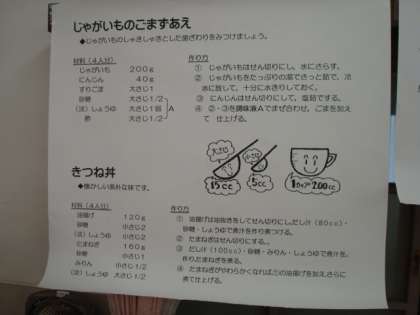 じゃがいものごまずあえ
●じゃがいものしゃきしゃきとした歯ざわりをみつけましょう。
材料(4人分)
じゃがいも 200g
にんじん 40g
すりごま 大さじ1
砂糖 大さじ1/2
(淡)しょうゆ 大さじ1弱 A
酢 大さじ1/2
作り方
① じゃがいもはせん切りにし、水にさらす。
② じゃがいもをたっぷりの湯でさっと茹で、冷
水に放して、十分に水きりしておく。
③ にんじんはせん切りにして、塩茹でする。
④ ②・③を調味液Aでまぜ合わせ、ごまを加え
て仕上げる。
大さじ
15cc
小さじ
5cc
1カップ=200cc
きつね丼
●懐かしい素朴な味です。
材料(4人分)
油揚げ 120g
砂糖 小さじ2
(淡)しょうゆ 小さじ2
たまねぎ 160g
砂糖 小さじ1
みりん 小さじ1/2
(淡)しょうゆ 大さじ1/2
作り方
① 油揚げは油抜きをしてせん切りにし、だし汁(80cc)・
砂糖・しょうゆで煮汁を作り煮つける。
② たまねぎはせん切りにする。
③ だし汁(100cc)・砂糖・みりん・しょうゆで煮汁を
作りたまねぎを煮る。
④ たまねぎがやわらかくなれば①の油揚げを加えさらに
煮て仕上げる。